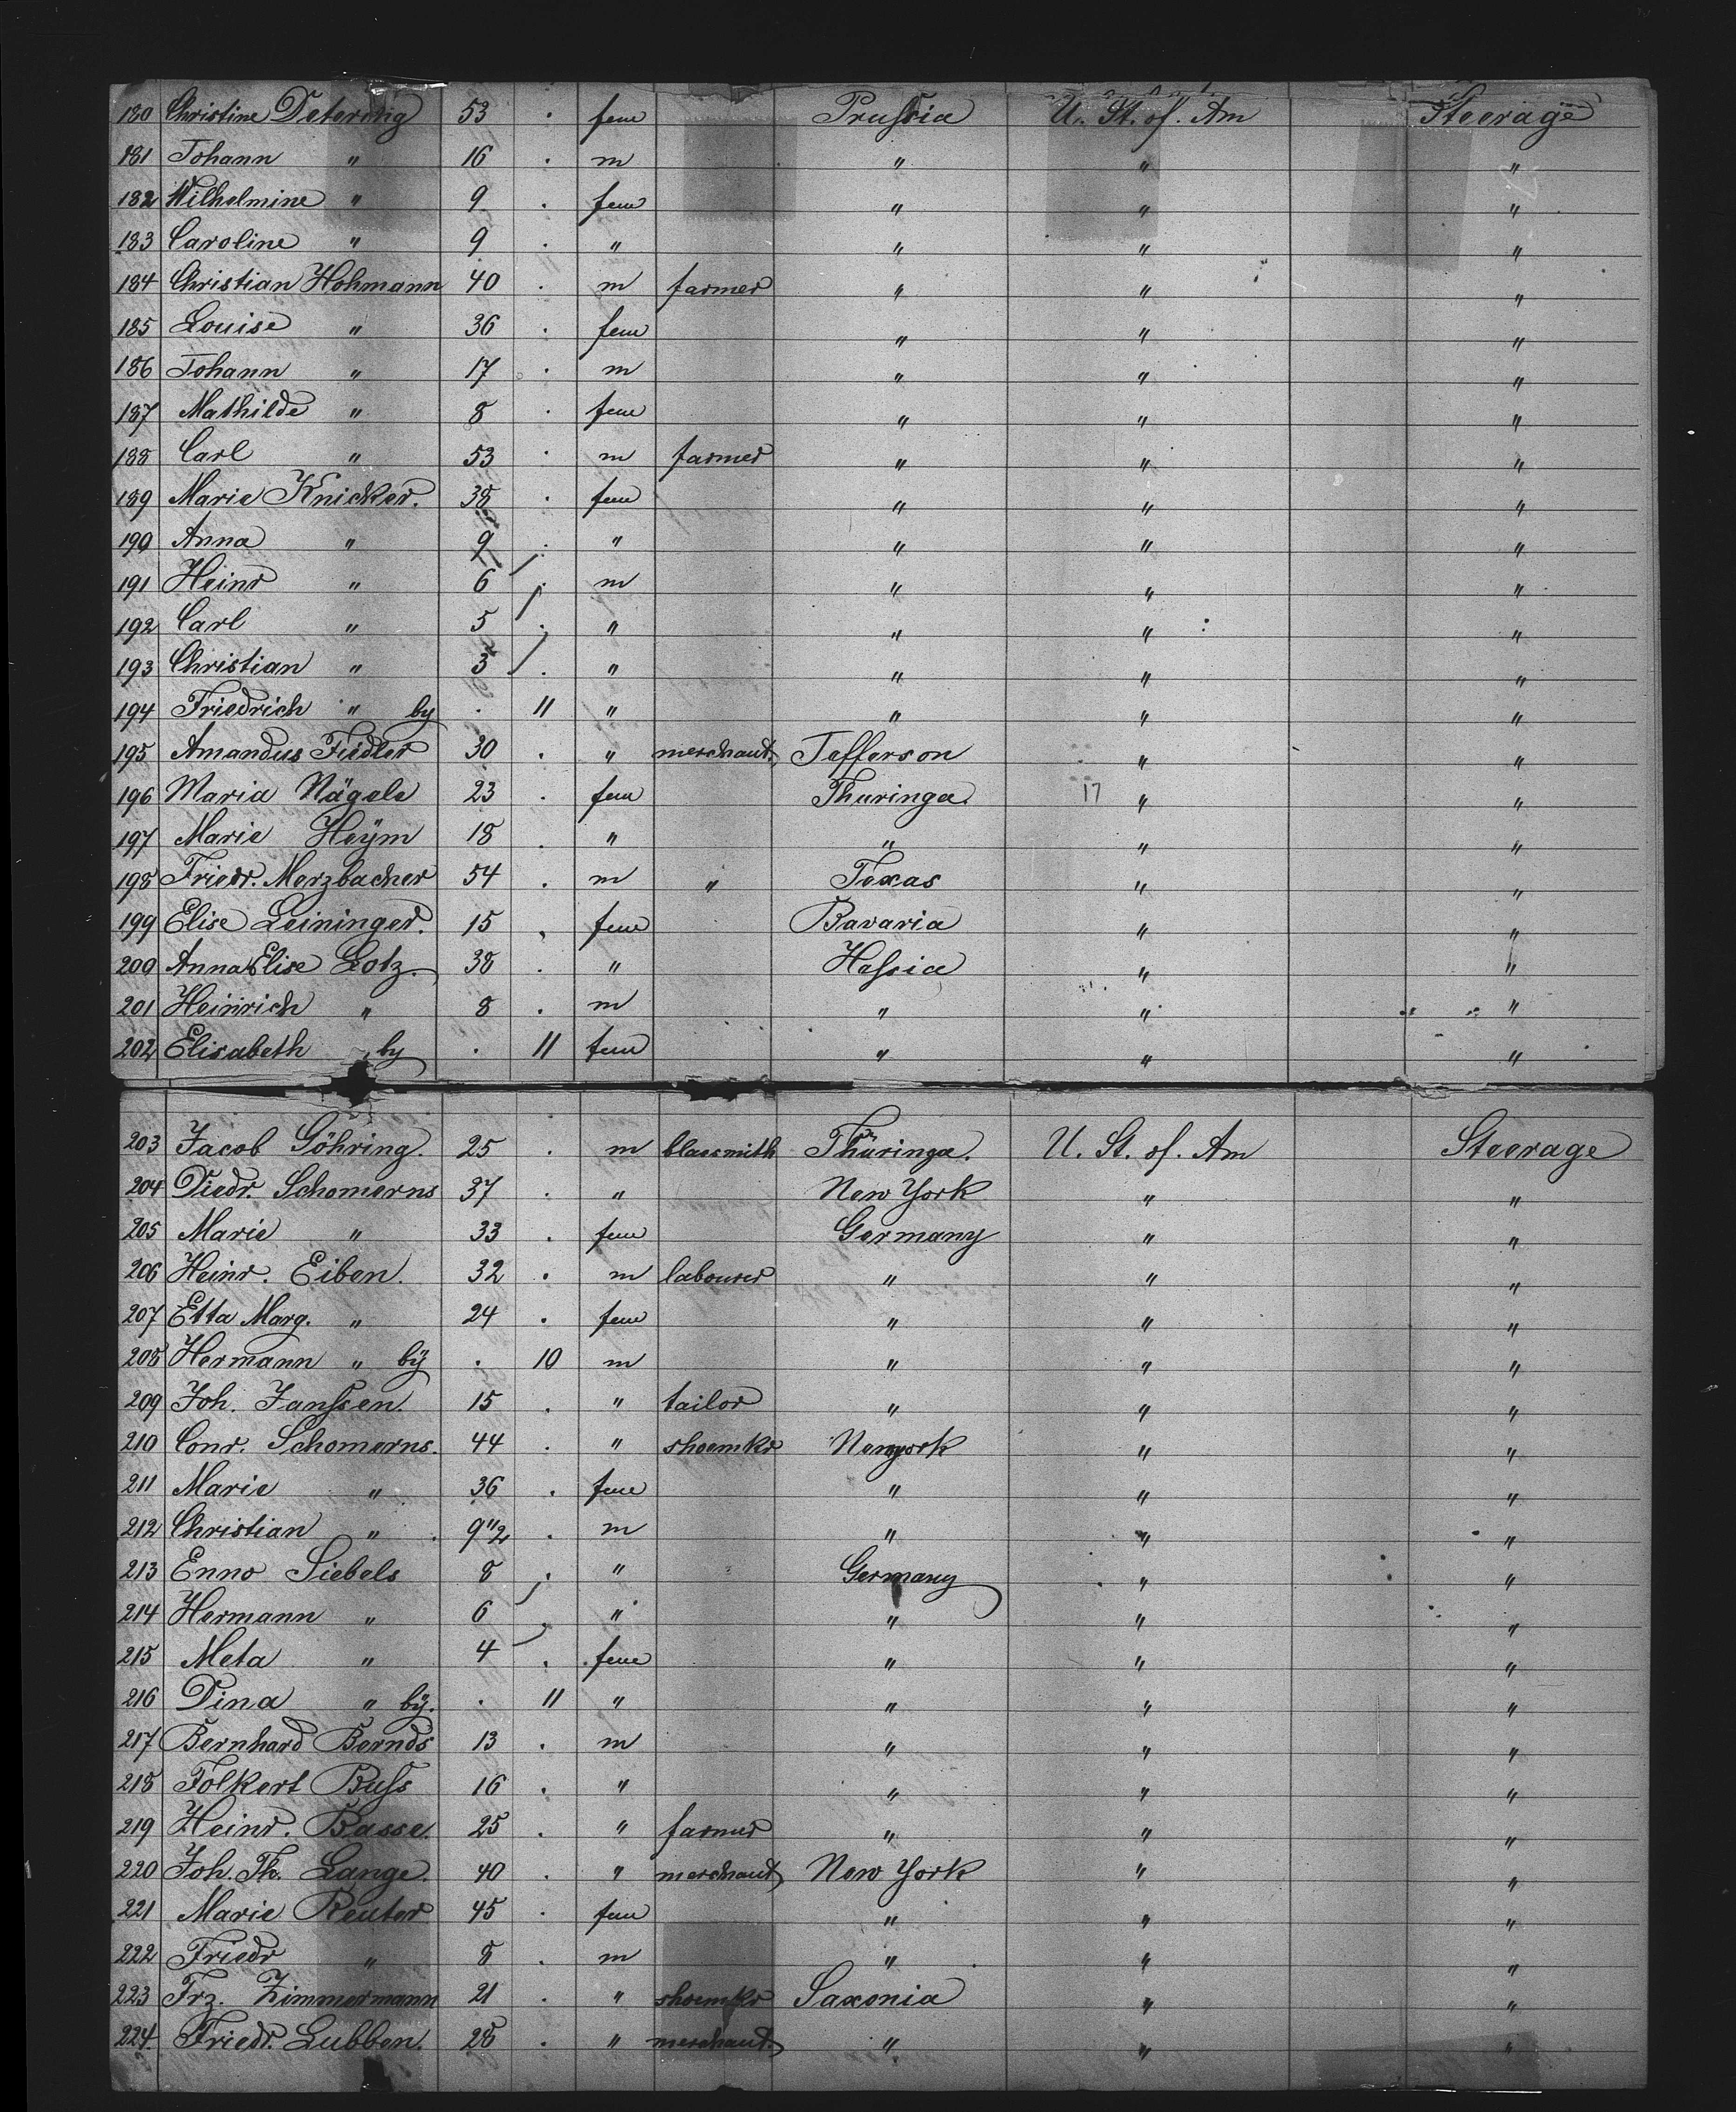 180 Christine Detering 53 . fem Prussia U. St. of. Am Steerage
181 Johann " 16 . m " " "
182 Wilhelmine " 9 . fem " " "
183 Caroline " 9 . " " " "
184 Christian Hohmann 40 . m farmer " " "
185 Louise " 36 . fem " " "
186 Johann " 17 . m " " "
187 Mathilde " 8 . fem " " "
188 Carl " 53 . m farmer " " "
189 Marie Knicker. 38 . fem " " "
190 Anna " 9 . " " " "
191 Heinr " 6 . m " " "
192 Carl " 5 . " " " "
193 Christian " 3 . " " " "
194 Friedrich " by . 11 " " " "
195 Amandus Fiedler 30 . " merchant Jefferson " "
196 Maria Nägele 23 . fem Thuringa. 17 " "
197 Marie Heÿm 18 . " " " "
198 Friedr. Merzbacher 54 . m " Texas " "
199 Elise Leininger. 15 . fem Bavaria " "
200 Anna Elise Lotz. 38 . " Hassia " "
201 Heinrich " 8 . m " " "
202 Elisabeth " by . 11 fem " " "
203 Jacob Göhring. 25 . m blacsmith Thüringa. U. St. of. Am Steerage
204 Diedr. Schomerns 37 . " New York " "
205 Marie " 33 . fem Germany " "
206 Heinr. Eiben. 32 . m labourer " " "
207 Etta Marg. " 24 . fem " " "
208 Hermann " bÿ . 10 m " " "
209 Joh. Janssen 15 . " tailor " " "
210 Conr. Schomerns. 44 . " shoemkr Newyork " "
211 Marie " 36 . fem " " "
212 Christian " 9 1/2 . m " " "
213 Enno Siebels 8 . " Germany " "
214 Hermann " 6 . " " " "
215 Meta " 4 . fem " " "
216 Dina " bÿ. . 11 " " " "
217 Bernhard Bernds 13 . m " " "
218 Folkert Buss 16 . " " " "
219 Heinr. Basse. 25 . " farmer " " "
220 Joh. Th. Lange. 40 . " merchant New York " "
221 Marie Reuter 45 . fem " " "
222 Friedr " 8 . m " " "
223 Frz. Zimmermann 21 . " shoemkr Saxonia " "
224. Friedr. Lubben. 28 . " merchant. " " "